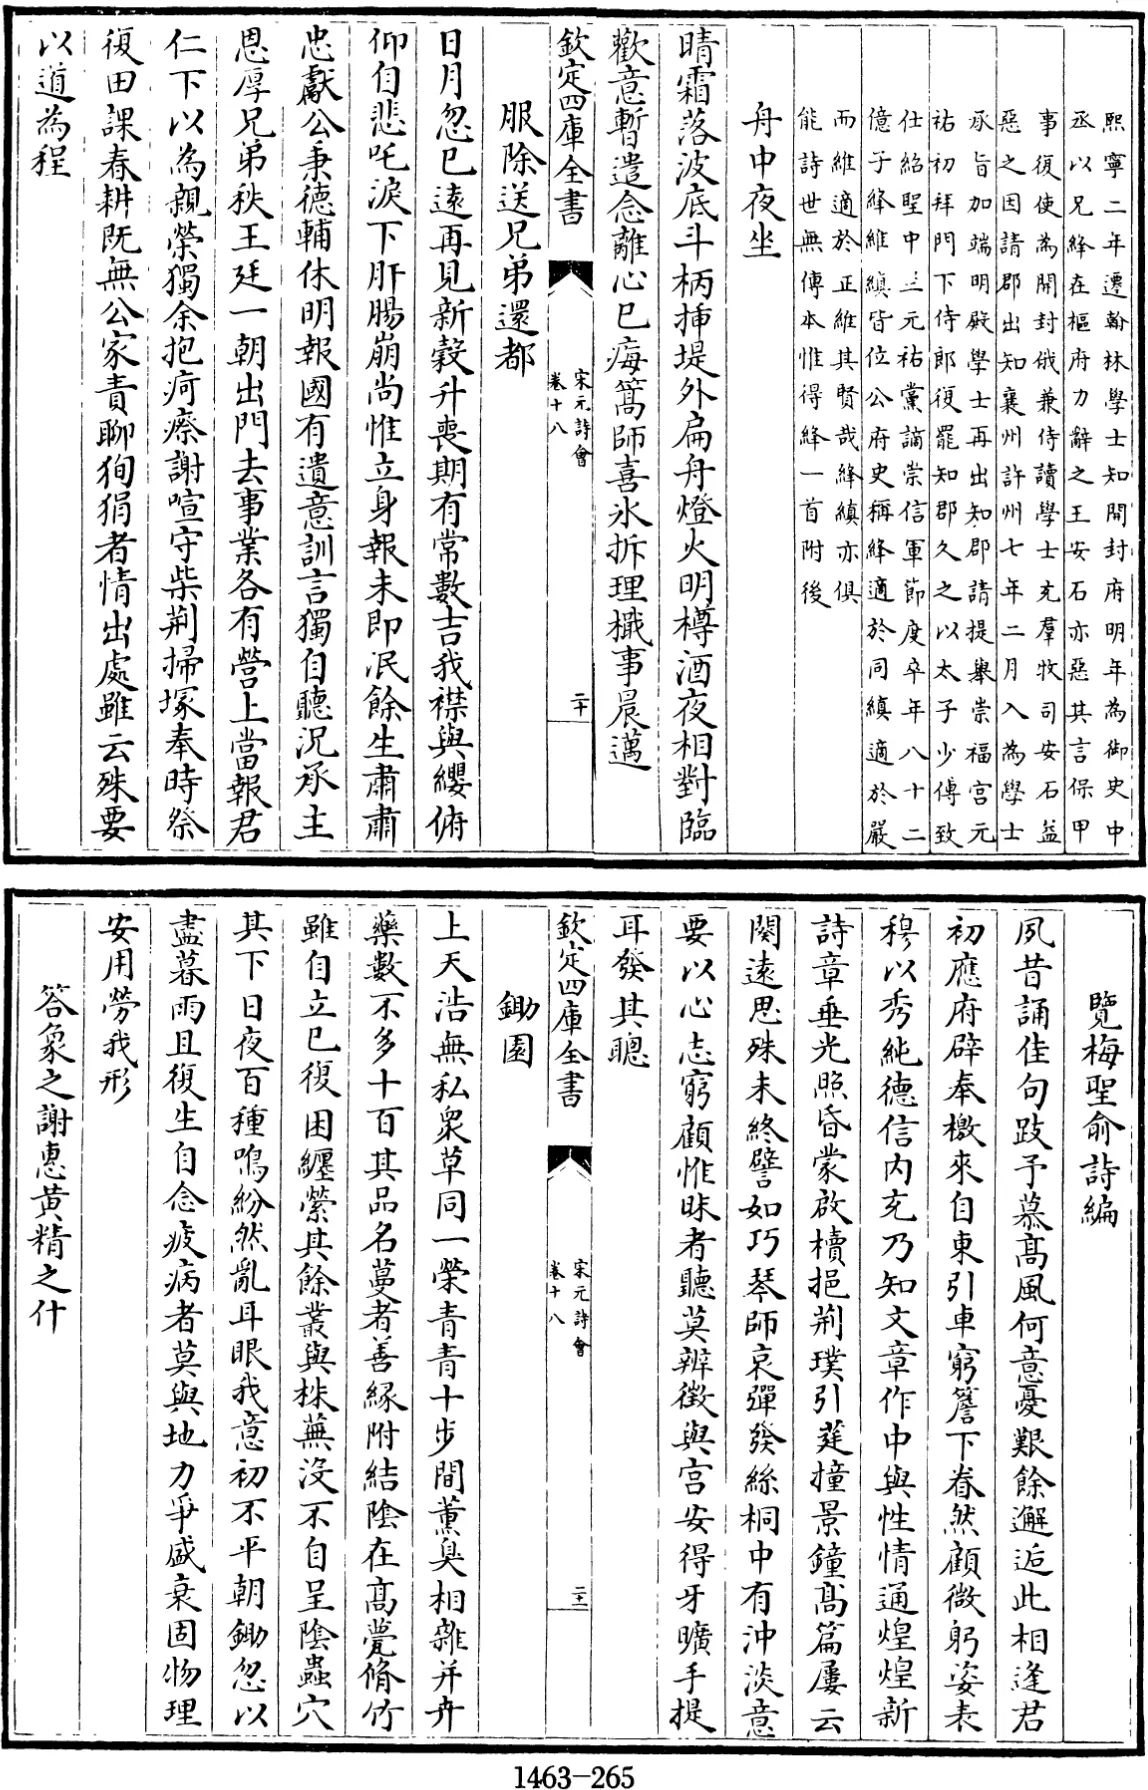 熙寧二年遷翰林學士知開封府明年為御史中
丞以兄絳在樞府力辭之王安石亦惡其言保甲
事復使為開封俄兼侍讀學士充羣牧司安石益
惡之因請郡出知襄州許州七年二月入為學士
承旨加端明殿學士再出知郡請提舉崇福宫元
祐初拜門下侍郎復罷知郡久之以太子少傅致
仕紹聖中三元祐黨謫崇信軍節度卒年八十二
億子絳維縝皆位公府史稱絳適於同縝適於嚴
而維適於正維其賢哉絳縝亦俱
能詩世無傳本惟得絳一首附後
舟中夜坐
晴霜落波底斗柄揷堤外扁舟燈火明樽酒夜相對臨
歡意暫遣念離心已痗篙師喜氷拆理檝事晨邁
欽定四庫全書
宋元詩會
卷十八
二十
服除送兄弟還都
日月忽已遠再見新穀升喪期有常數吉我襟與纓俯
仰自悲吒淚下肝腸崩尚惟立身報未即泯餘生肅肅
忠獻公秉德輔休明報國有遺意訓言獨自聽况承主
恩厚兄弟秩王廷一朝出門去事業各有營上當報君
仁下以為親榮獨余抱疴瘵謝喧守柴荆掃塚奉時祭
復田課春耕既無公家責聊狥狷者情出處雖云殊要
以道為程
覽梅聖俞詩編
夙昔誦佳句跂予慕髙風何意憂艱餘邂逅此相逢君
初應府辟奉檄來自東引車窮簷下眷然顧微躬姿表
穆以秀純德信内充乃知文章作中與性情通煌煌新
詩章垂光照昏蒙啟櫝挹荆璞引莛撞景鐘髙篇屢云
闋遠思殊未終譬如巧琴師哀彈發絲桐中有沖淡意
要以心志窮顧惟昧者聽莫辨徵與宫安得牙曠手提
耳發其聰
欽定四庫全書
宋元詩會
卷十八
二十一
鋤園
上天浩無私衆草同一榮青青十步間薰臭相雜并卉
藥數不多十百其品名蔓者善緣附結隂在髙甍脩竹
雖自立已復困纒縈其餘叢與株蕪没不自呈隂蟲穴
其下日夜百種鳴紛然亂耳眼我意初不平朝鋤忽以
盡暮雨且復生自念疲病者莫與地力爭盛衰固物理
安用勞我形
答象之謝惠黄精之什
1463-265